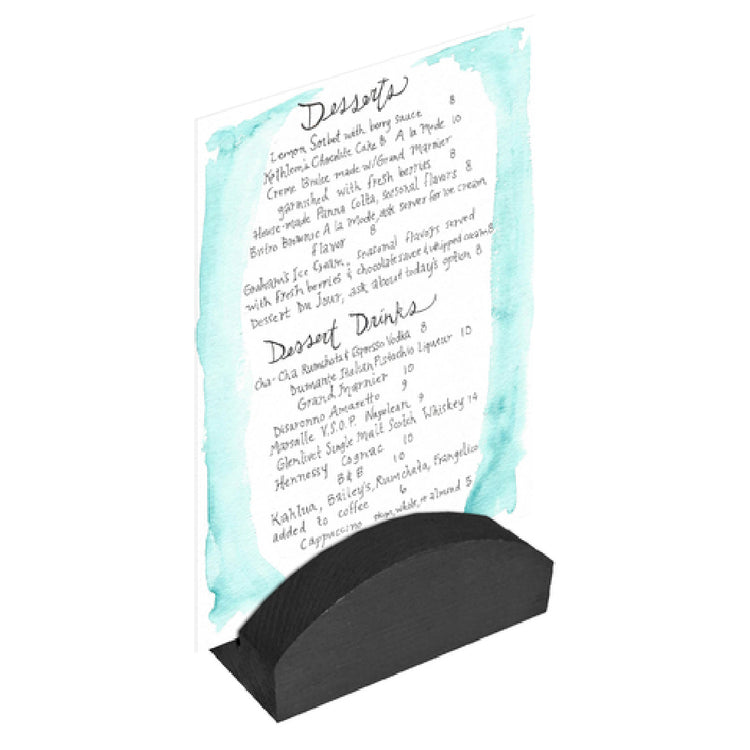 Desserts
Lemon Sorbet with berry sauce 8
Kathleen's Chocolate Cake 8 A la Mode 10
Creme Brulee made w/Grand Marnier
garnished with fresh berries 8
House-made Panna Cotta, seasonal flavors 8
Bistro Brownie A la mode, ask server for ice cream
flavor 8
Graham's Ice Cream, seasonal flavors served
with fresh berries & chocolate sauce & whipped cream 8
Dessert Du Jour, ask about today's option 8
Dessert Drinks
Cha-Cha Rumchata & Espresso Vodka 8
Dumante Italian Pistachio Liqueur 10
Grand Marnier 10
Disaronno Amaretto 9
Marsaille V.S.O.P. Napolean 9
Glenlivet Single Malt Scotch Whiskey 14
Hennessy Cognac 10
B&B 10
Kahlua, Bailey's, Rumchata, Frangelico
added to coffee 6
Cappuccino whole, or almond 5